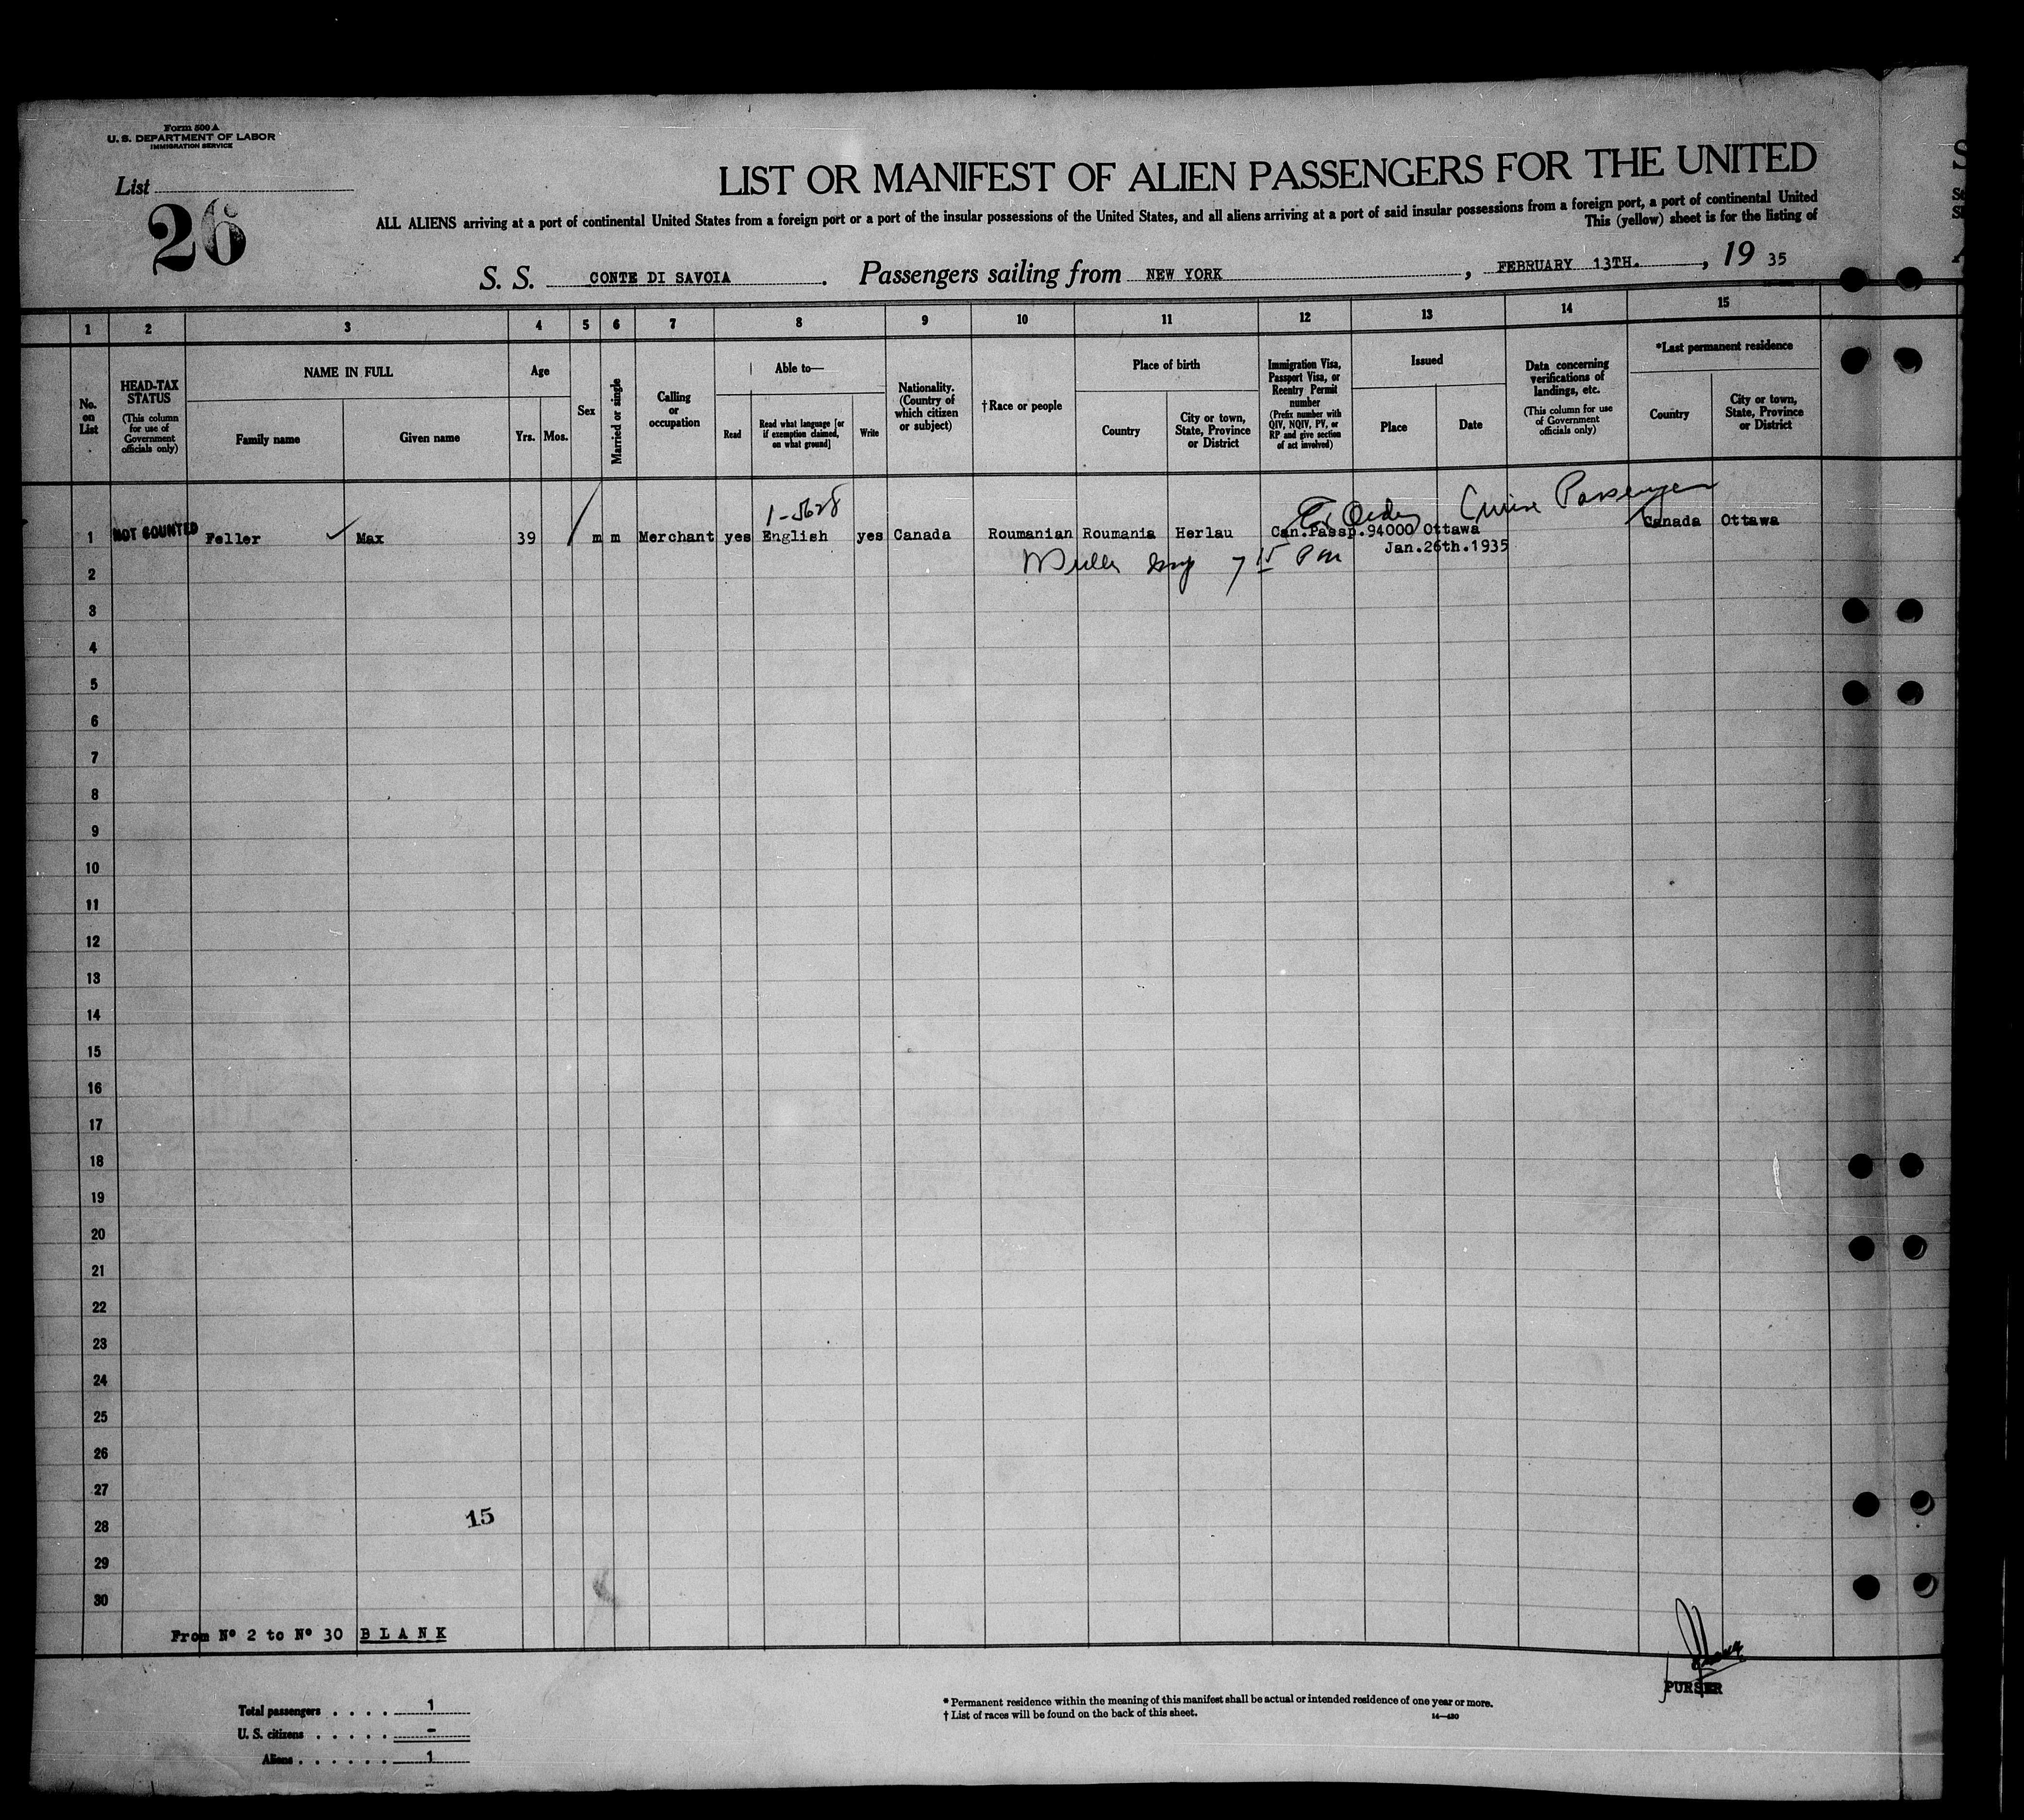 Form 500 A
U. S. DEPARTMENT OF LABOR
IMMIGRATION SERVICE
List
26
LIST OR MANIFEST OF ALIEN PASSENGERS FOR THE UNITED
ALL ALIENS arriving at a port of continental United States from a foreign port or a port of the insular possessions of the United States, and all aliens arriving at a port of said insular possessions from a foreign port, a port of continental United
This (yellow) sheet is for the listing of
S. S. CONTE DI SAVOIA. Passengers sailing from NEW YORK, FEBRUARY 13TH., 19 35
1 2 3 4 5 6 7 8 9 10 11 12 13 14 15
No. on List
HEAD-TAX STATUS
(This column for use of Government officials only)
NAME IN FULL
Family name
Given name
Age
Yrs. Mos.
Sex
Married or single
Calling or occupation
Able to—
Read
Read what language [or if exemption claimed, on what ground]
Write
Nationality. (Country of which citizen or subject)
† Race or people
Place of birth
Country
City or town, State, Province or District
Immigration Visa, Passport Visa, or Reentry Permit number
(Prefix number with QIV, NQIV, PV, or RP and give section of act involved)
Issued
Place
Date
Data concerning verifications of landings, etc.
(This column for use of Government officials only)
*Last permanent residence
Country
City or town, State, Province or District
1-5628
Cruise Passenger
1 NOT COUNTED Feller Max 39 m m Merchant yes English yes Canada Roumanian Roumania Herlau Can.Passp.94000 Ottawa Canada Ottawa
Jan.26th.1935
7 15 PM
2
3
4
5
6
7
8
9
10
11
12
13
14
15
16
17
18
19
20
21
22
23
24
25
26
27
15
28
29
30
From Nº 2 to Nº 30 BLANK
PURSER
Total passengers . . . . 1
U. S. citizens . . . . . -
Aliens . . . . . . 1
* Permanent residence within the meaning of this manifest shall be actual or intended residence of one year or more.
† List of races will be found on the back of this sheet.
14—430